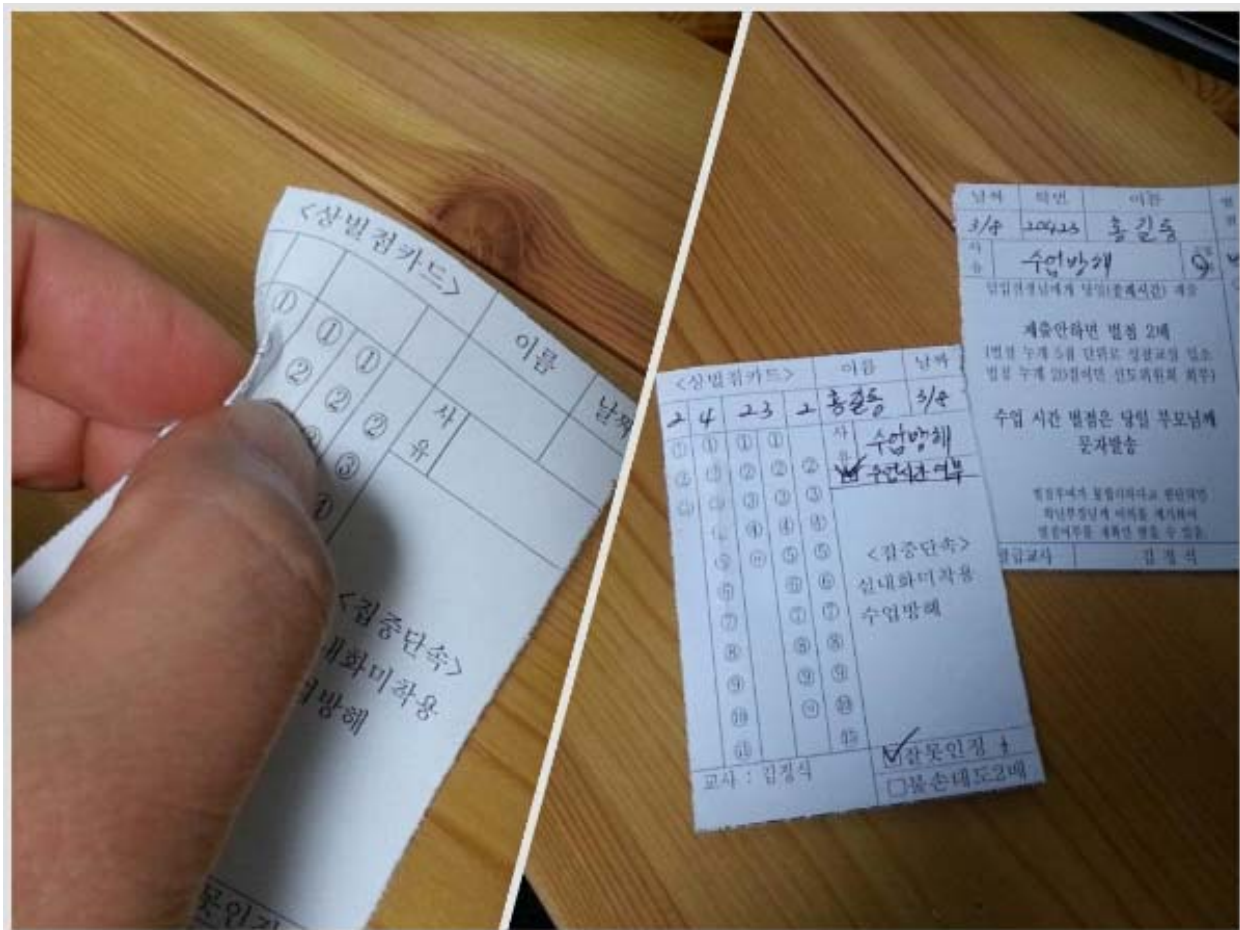 <상벌점카드>
이름
날짜
① ① ①
② ② ②
③
사유
<집중단속>
내화미착용
방해
못인정
<상벌점카드> 이름 날짜
2 4 23 2 홍길동 3/8
사 수업방해
수업시간 여부
① ① ① ①
② ② ② ② ②
③ ③ ③ ③ ③
④ ④ ④ ④
⑤ ⑤ ⑤
⑥ ⑥ ⑥
⑦ ⑦ ⑦
⑧ ⑧ ⑧
⑨ ⑨ ⑨
⑩ ⑩
⑪ ⑮
<집중단속>
실내화미착용
수업방해
교사 : 김정식
잘못인정
불손태도2배
날짜 학번 이름
3/8 20423 홍길동
사유 수업방해
담임선생님에게 당일(종례시간) 제출
제출안하면 벌점 2배
(벌점 누계 5점 단위로 성찰교실 입소
벌점 누계 20점이면 선도위원회 회부)
수업 시간 벌점은 당일 부모님께
문자발송
벌점부여가 불합리하다고 판단되면
학년부장님께 이의를 제기하여
벌점여부를 재확인 받을 수 있음
발급교사 김정식